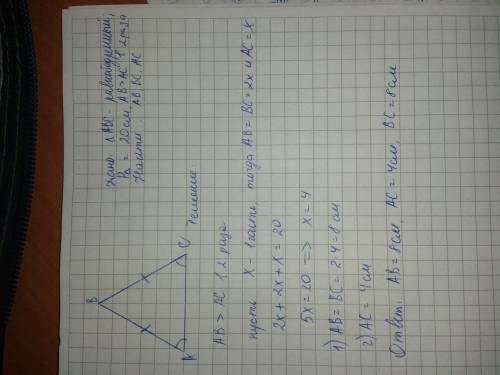 Дано: △ABC - равнобедренный,
P△ = 20см, AB>AC в 2 раза
Найти: AB, BC, AC
B
A
C
Решение
AB > AC в 2 раза
пусть X - 1 часть, тогда AB = BC = 2x и AC = X
2x + 2x + x = 20
5x = 20 => x = 4
1) AB = BC = 2·4 = 8 см
2) AC = 4 см
Ответ: AB = 8см, AC = 4см, BC = 8см